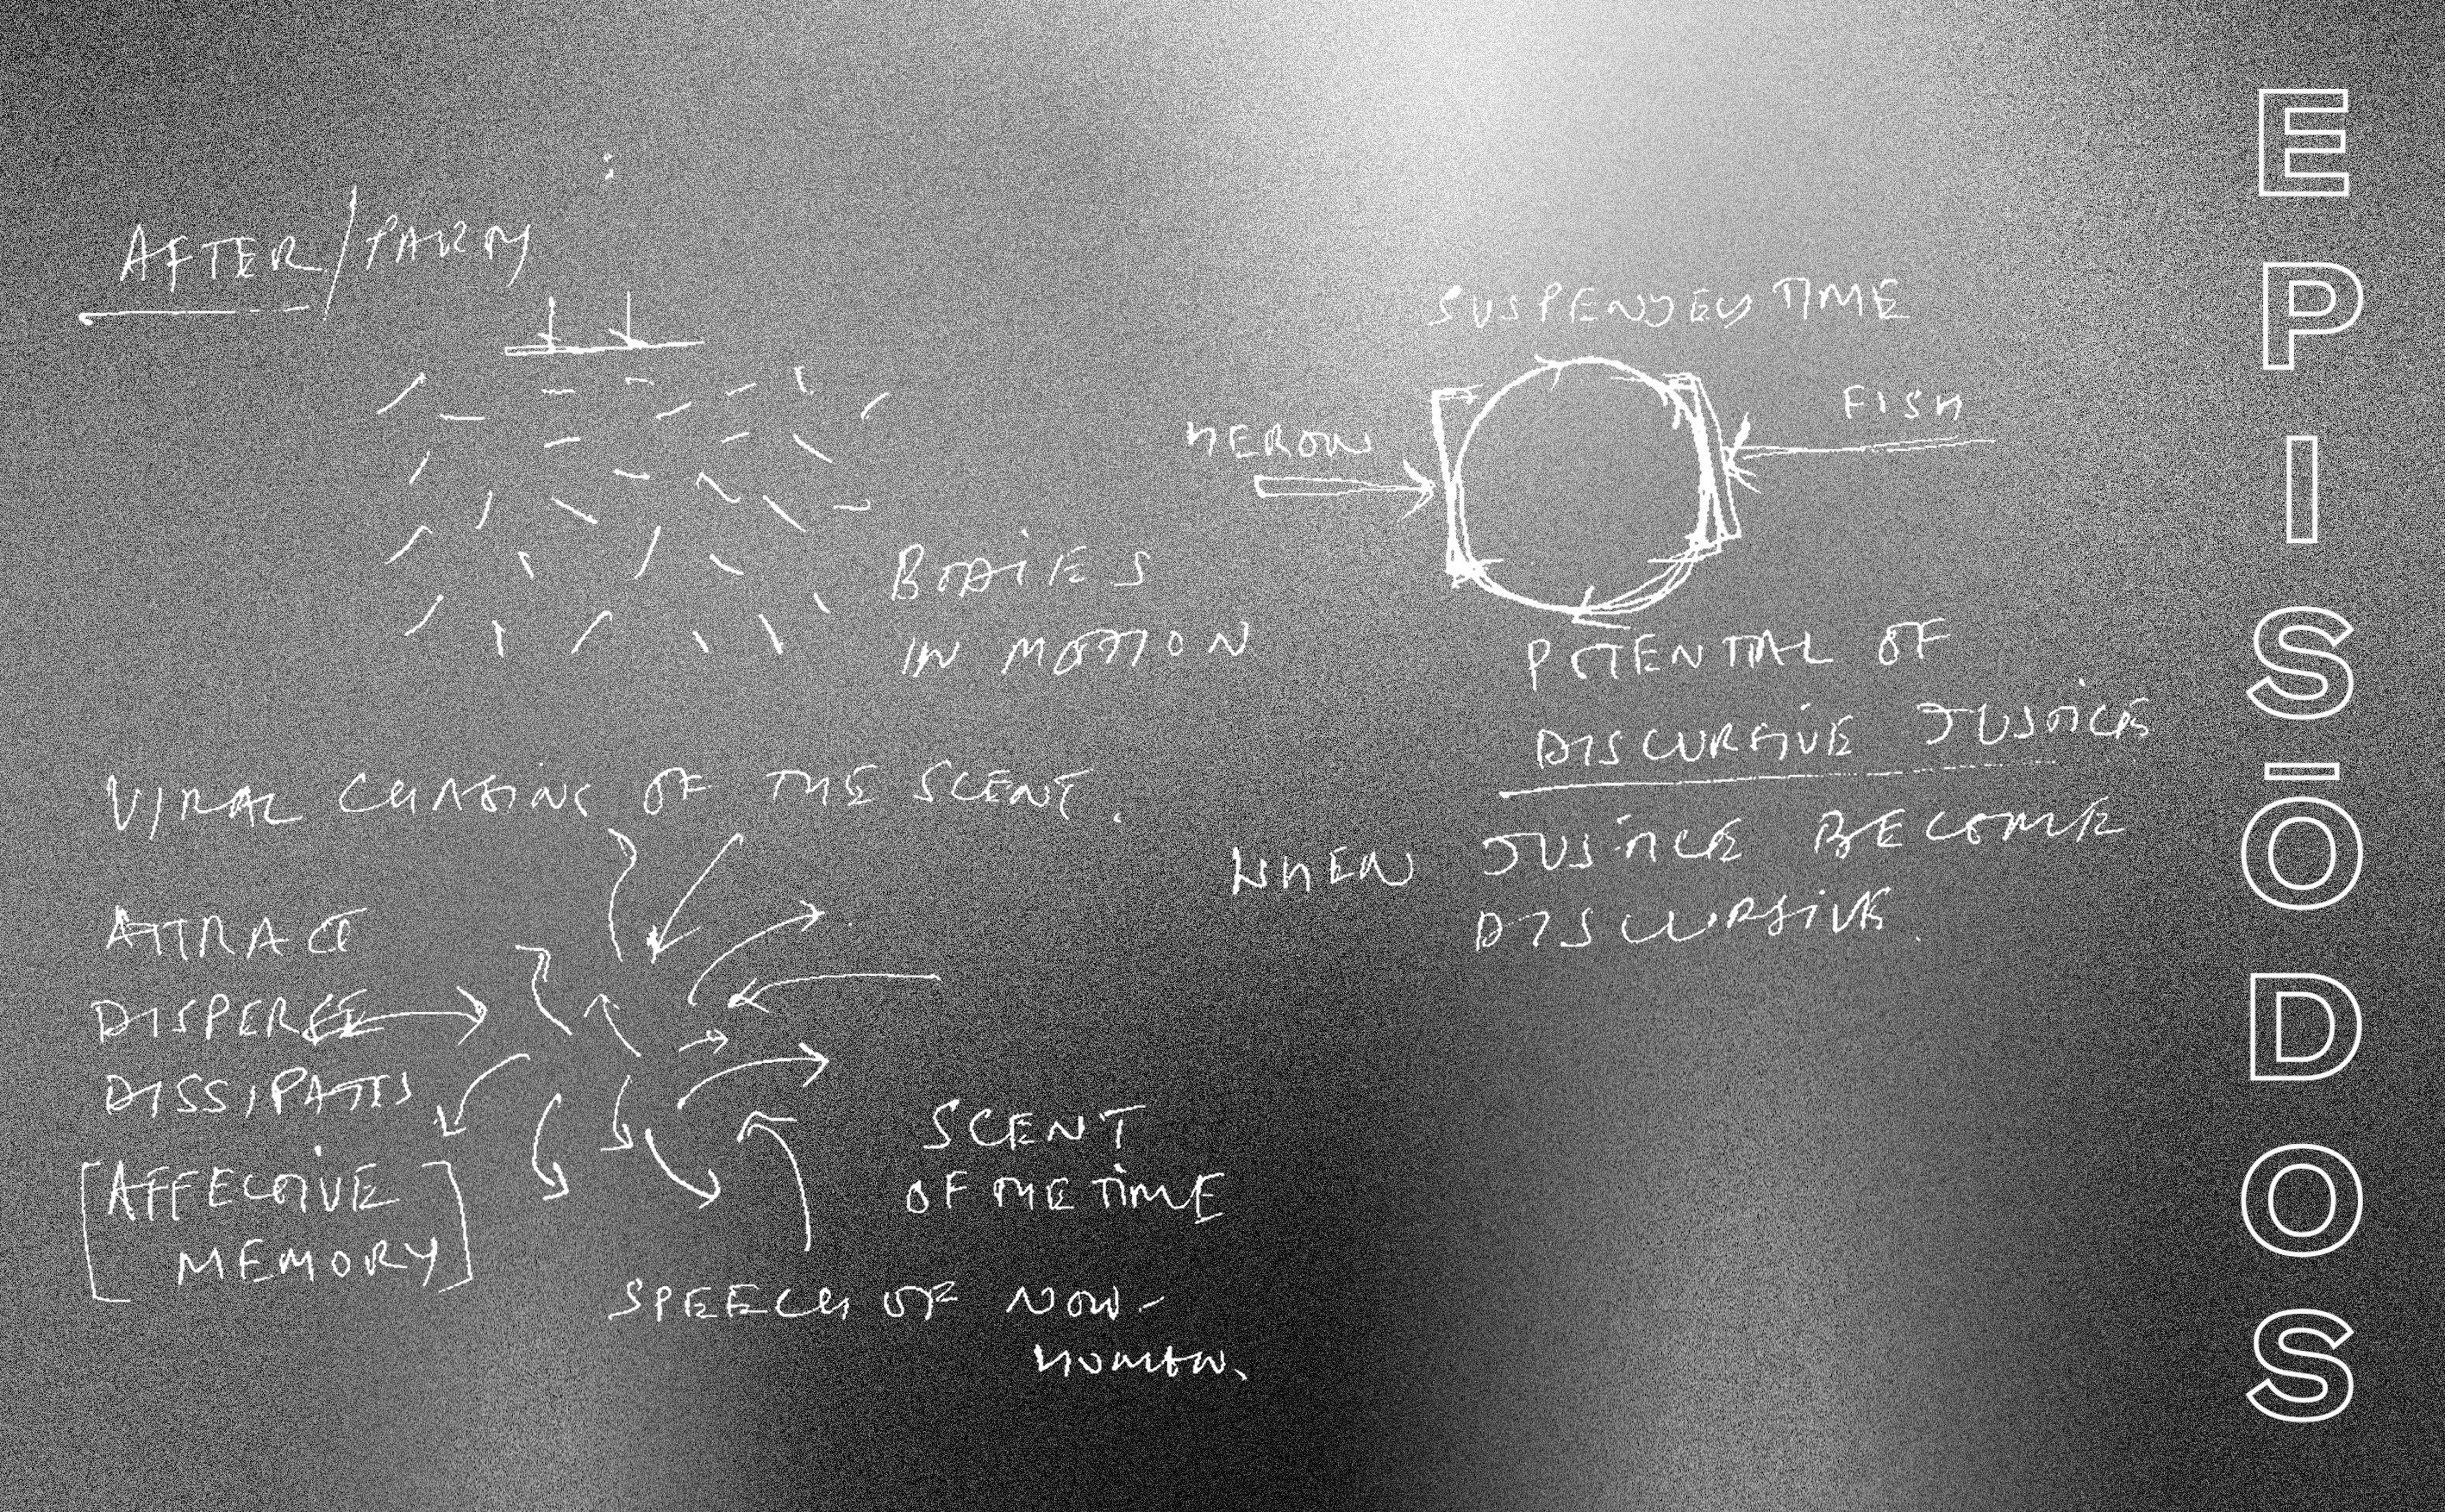 AFTER/PARTY
BODIES
IN MOTION
VIRAL CHASING OF THE SCENT.
ATTRACT
DISPERSE
DISSIPATES
[AFFECTIVE
MEMORY]
SCENT
OF THE TIME
SPEECH OF NON-
HUMAN.
SUSPENDED TIME
HERON
FISH
POTENTIAL OF
DISCURSIVE JUSTICE
WHEN JUSTICE BECOME
DISCURSIVE.
EPISŌDOS